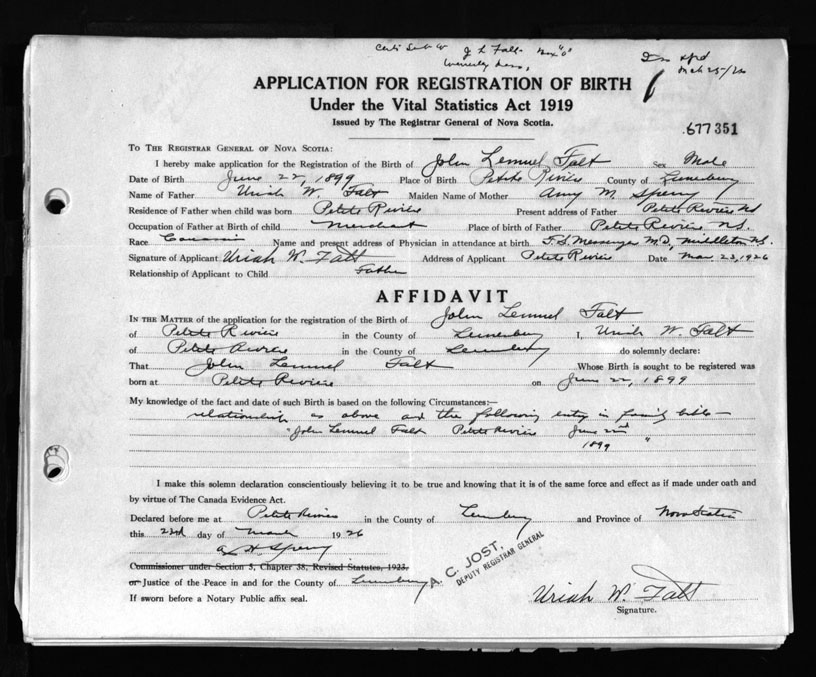 J L Falt Box "0"
Waverley
Mch 25/26
APPLICATION FOR REGISTRATION OF BIRTH
Under the Vital Statistics Act 1919
Issued by The Registrar General of Nova Scotia.
677351
TO THE REGISTRAR GENERAL OF NOVA SCOTIA:
I hereby make application for the Registration of the Birth of John Lemuel Falt Sex Male
Date of Birth June 22, 1899 Place of Birth Petite Riviere County of Lunenburg
Name of Father Uriah W. Falt Maiden Name of Mother Amy M. Sperry
Residence of Father when child was born Petite Riviere Present address of Father Petite Riviere NS
Occupation of Father at Birth of child Merchant Place of birth of Father Petite Riviere, N.S.
Race Name and present address of Physician in attendance at birth F. S. Messenger M.D, Middleton N.S.
Signature of Applicant Uriah W. Falt Address of Applicant Petite Riviere Date Mar 23, 1926
Relationship of Applicant to Child Father
AFFIDAVIT
IN THE MATTER of the application for the registration of the Birth of John Lemuel Falt
of Petite Riviere in the County of Lunenburg I, Uriah W. Falt
of Petite Riviere in the County of Lunenburg do solemnly declare:
That John Lemuel Falt Whose Birth is sought to be registered was
born at Petite Riviere on June 22, 1899
My knowledge of the fact and date of such Birth is based on the following Circumstances:—
relationship as above and the following entry in family bible—
"John Lemuel Falt Petite Riviere June 22nd
1899 "
I make this solemn declaration conscientiously believing it to be true and knowing that it is of the same force and effect as if made under oath and
by virtue of The Canada Evidence Act.
Declared before me at Petite Riviere in the County of Lunenburg and Province of Nova Scotia
this 23rd day of March 1926
H Sperry
Commissioner under Section 5, Chapter 38, Revised Statutes, 1923,
or Justice of the Peace in and for the County of Lunenburg
A. C. JOST,
DEPUTY REGISTRAR GENERAL
If sworn before a Notary Public affix seal.
Uriah W. Falt
Signature.